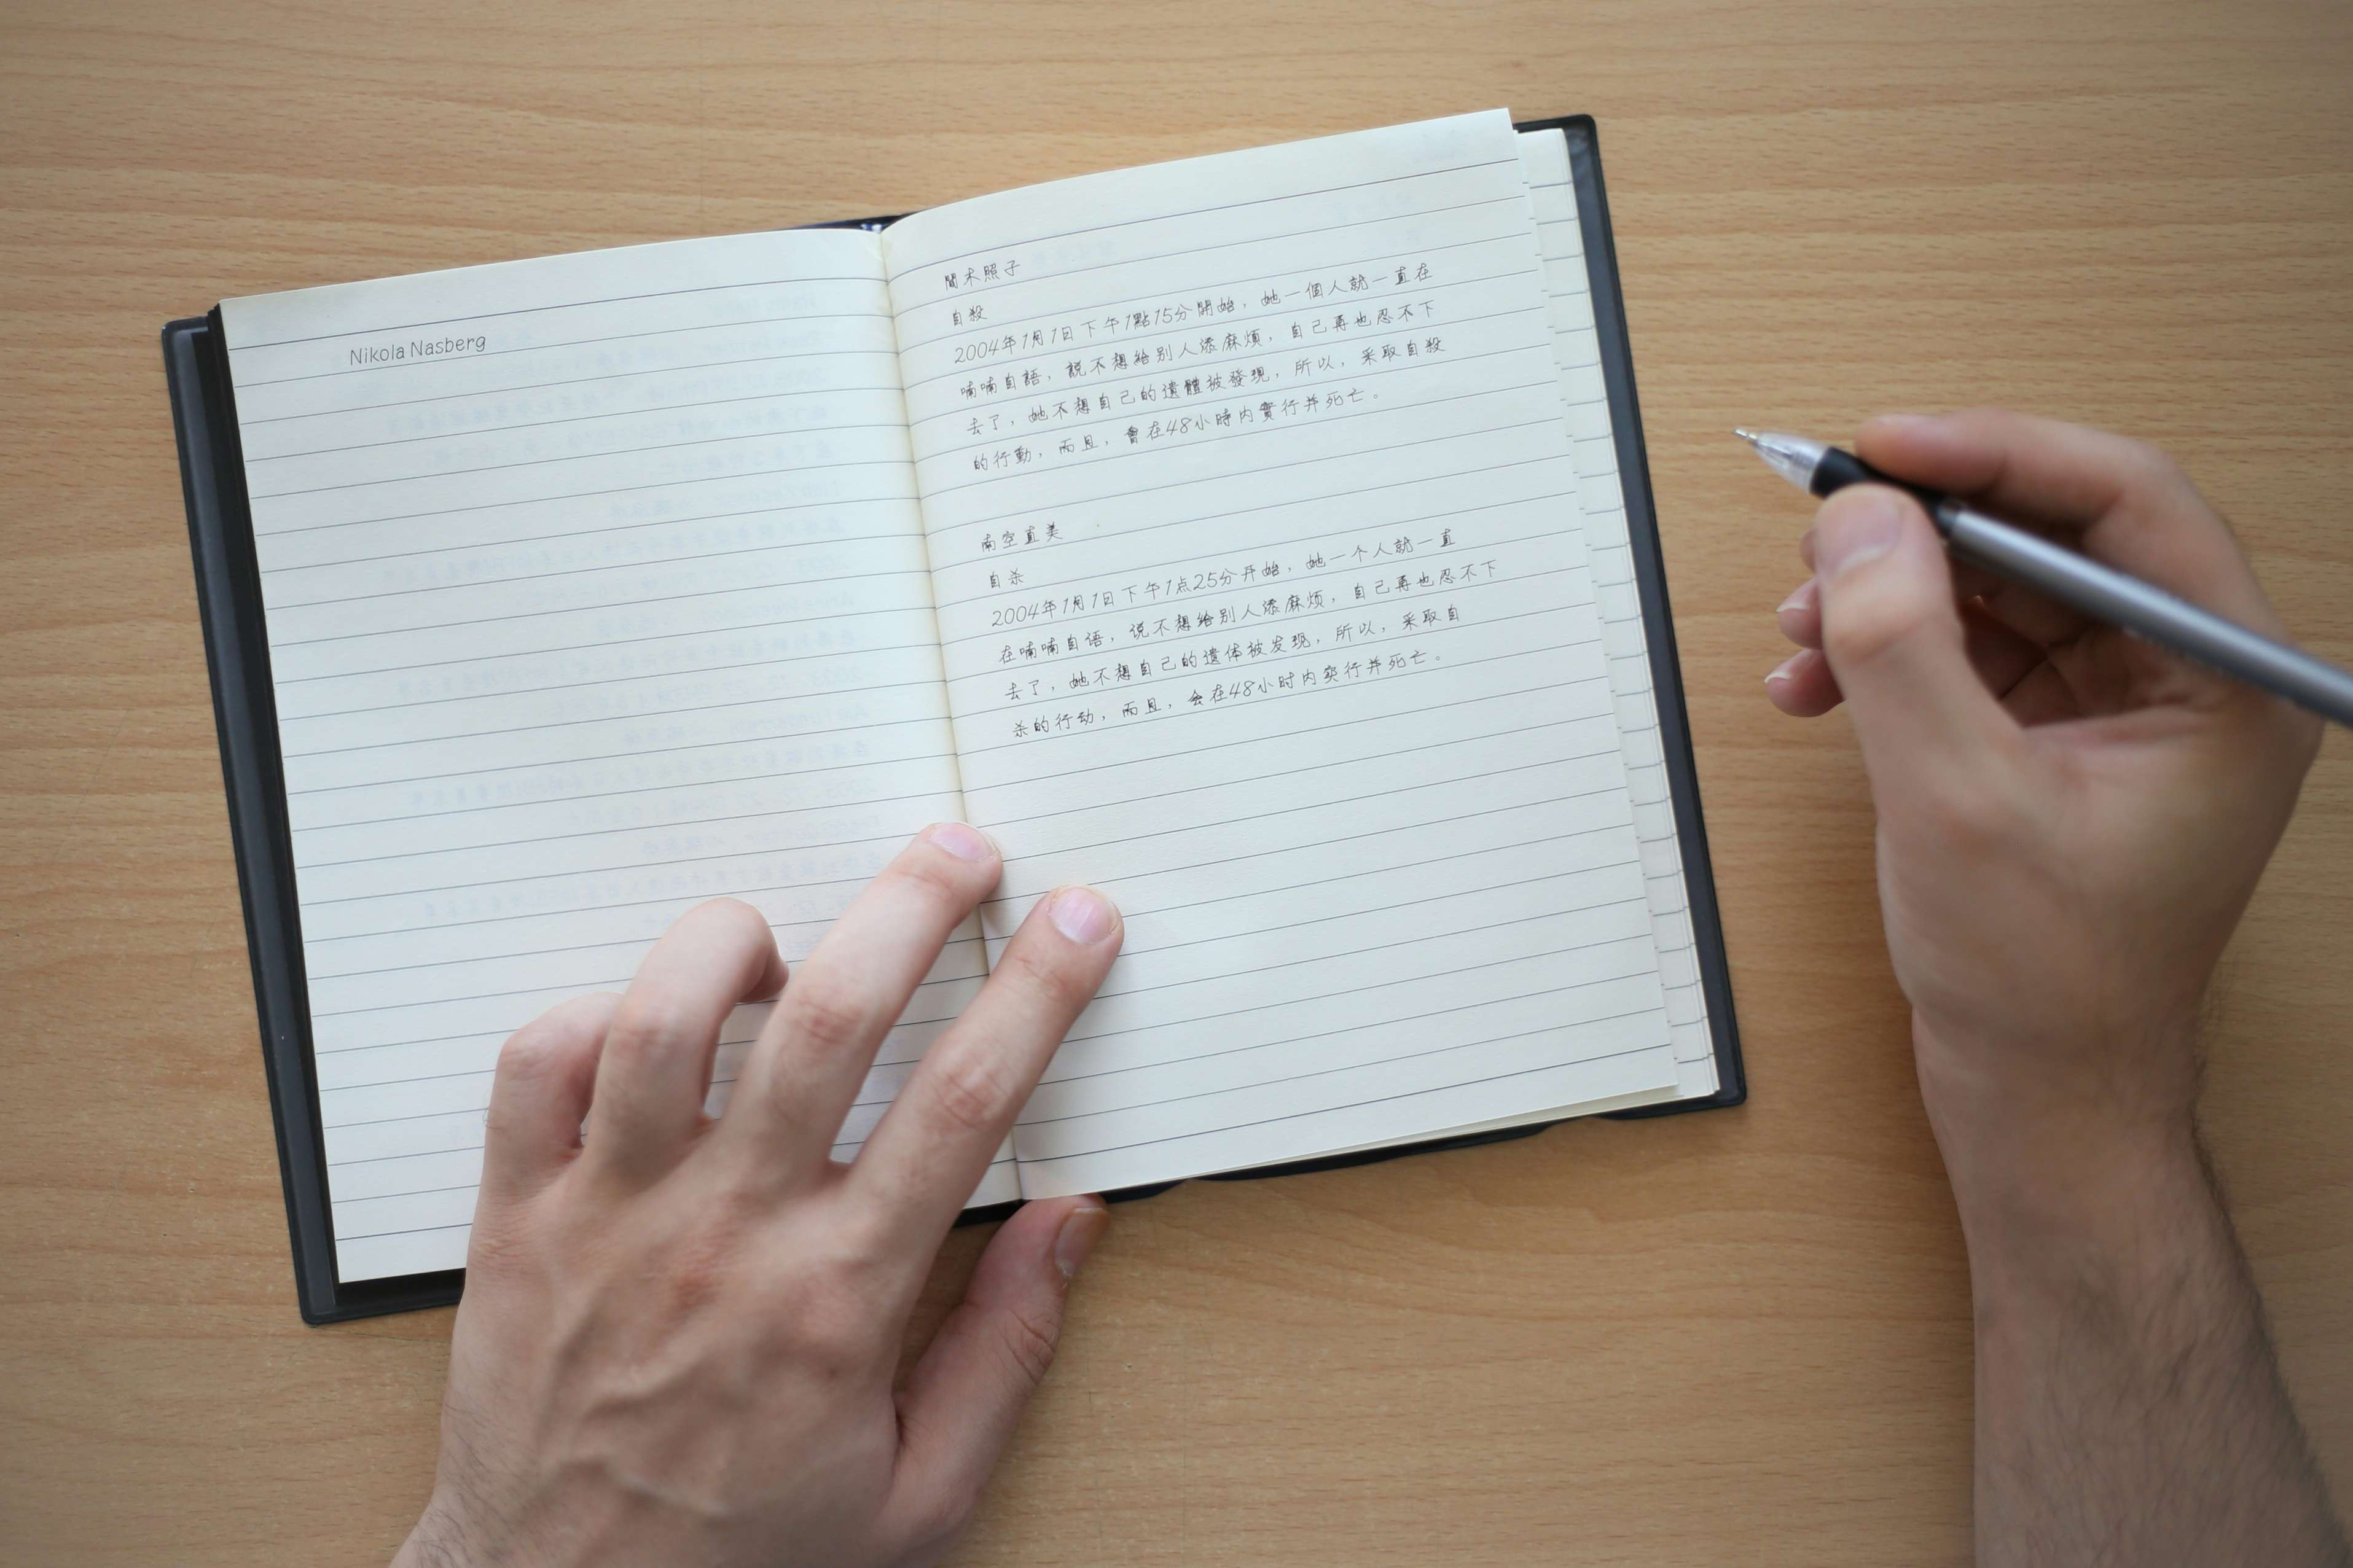 Nikola Nasberg
間木照子
自殺
2004年1月1日下午1點15分開始，她一個人就一直在
喃喃自語，説不想給别人添麻煩，自己再也忍不下
去了，她不想自己的遺體被發現，所以，采取自殺
的行動，而且，會在48小時内實行并死亡。
南空直美
自杀
2004年1月1日下午1点25分开始，她一个人就一直
在喃喃自语，说不想给别人添麻烦，自己再也忍不下
去了，她不想自己的遗体被发现，所以，采取自
杀的行动，而且，会在48小时内实行并死亡。